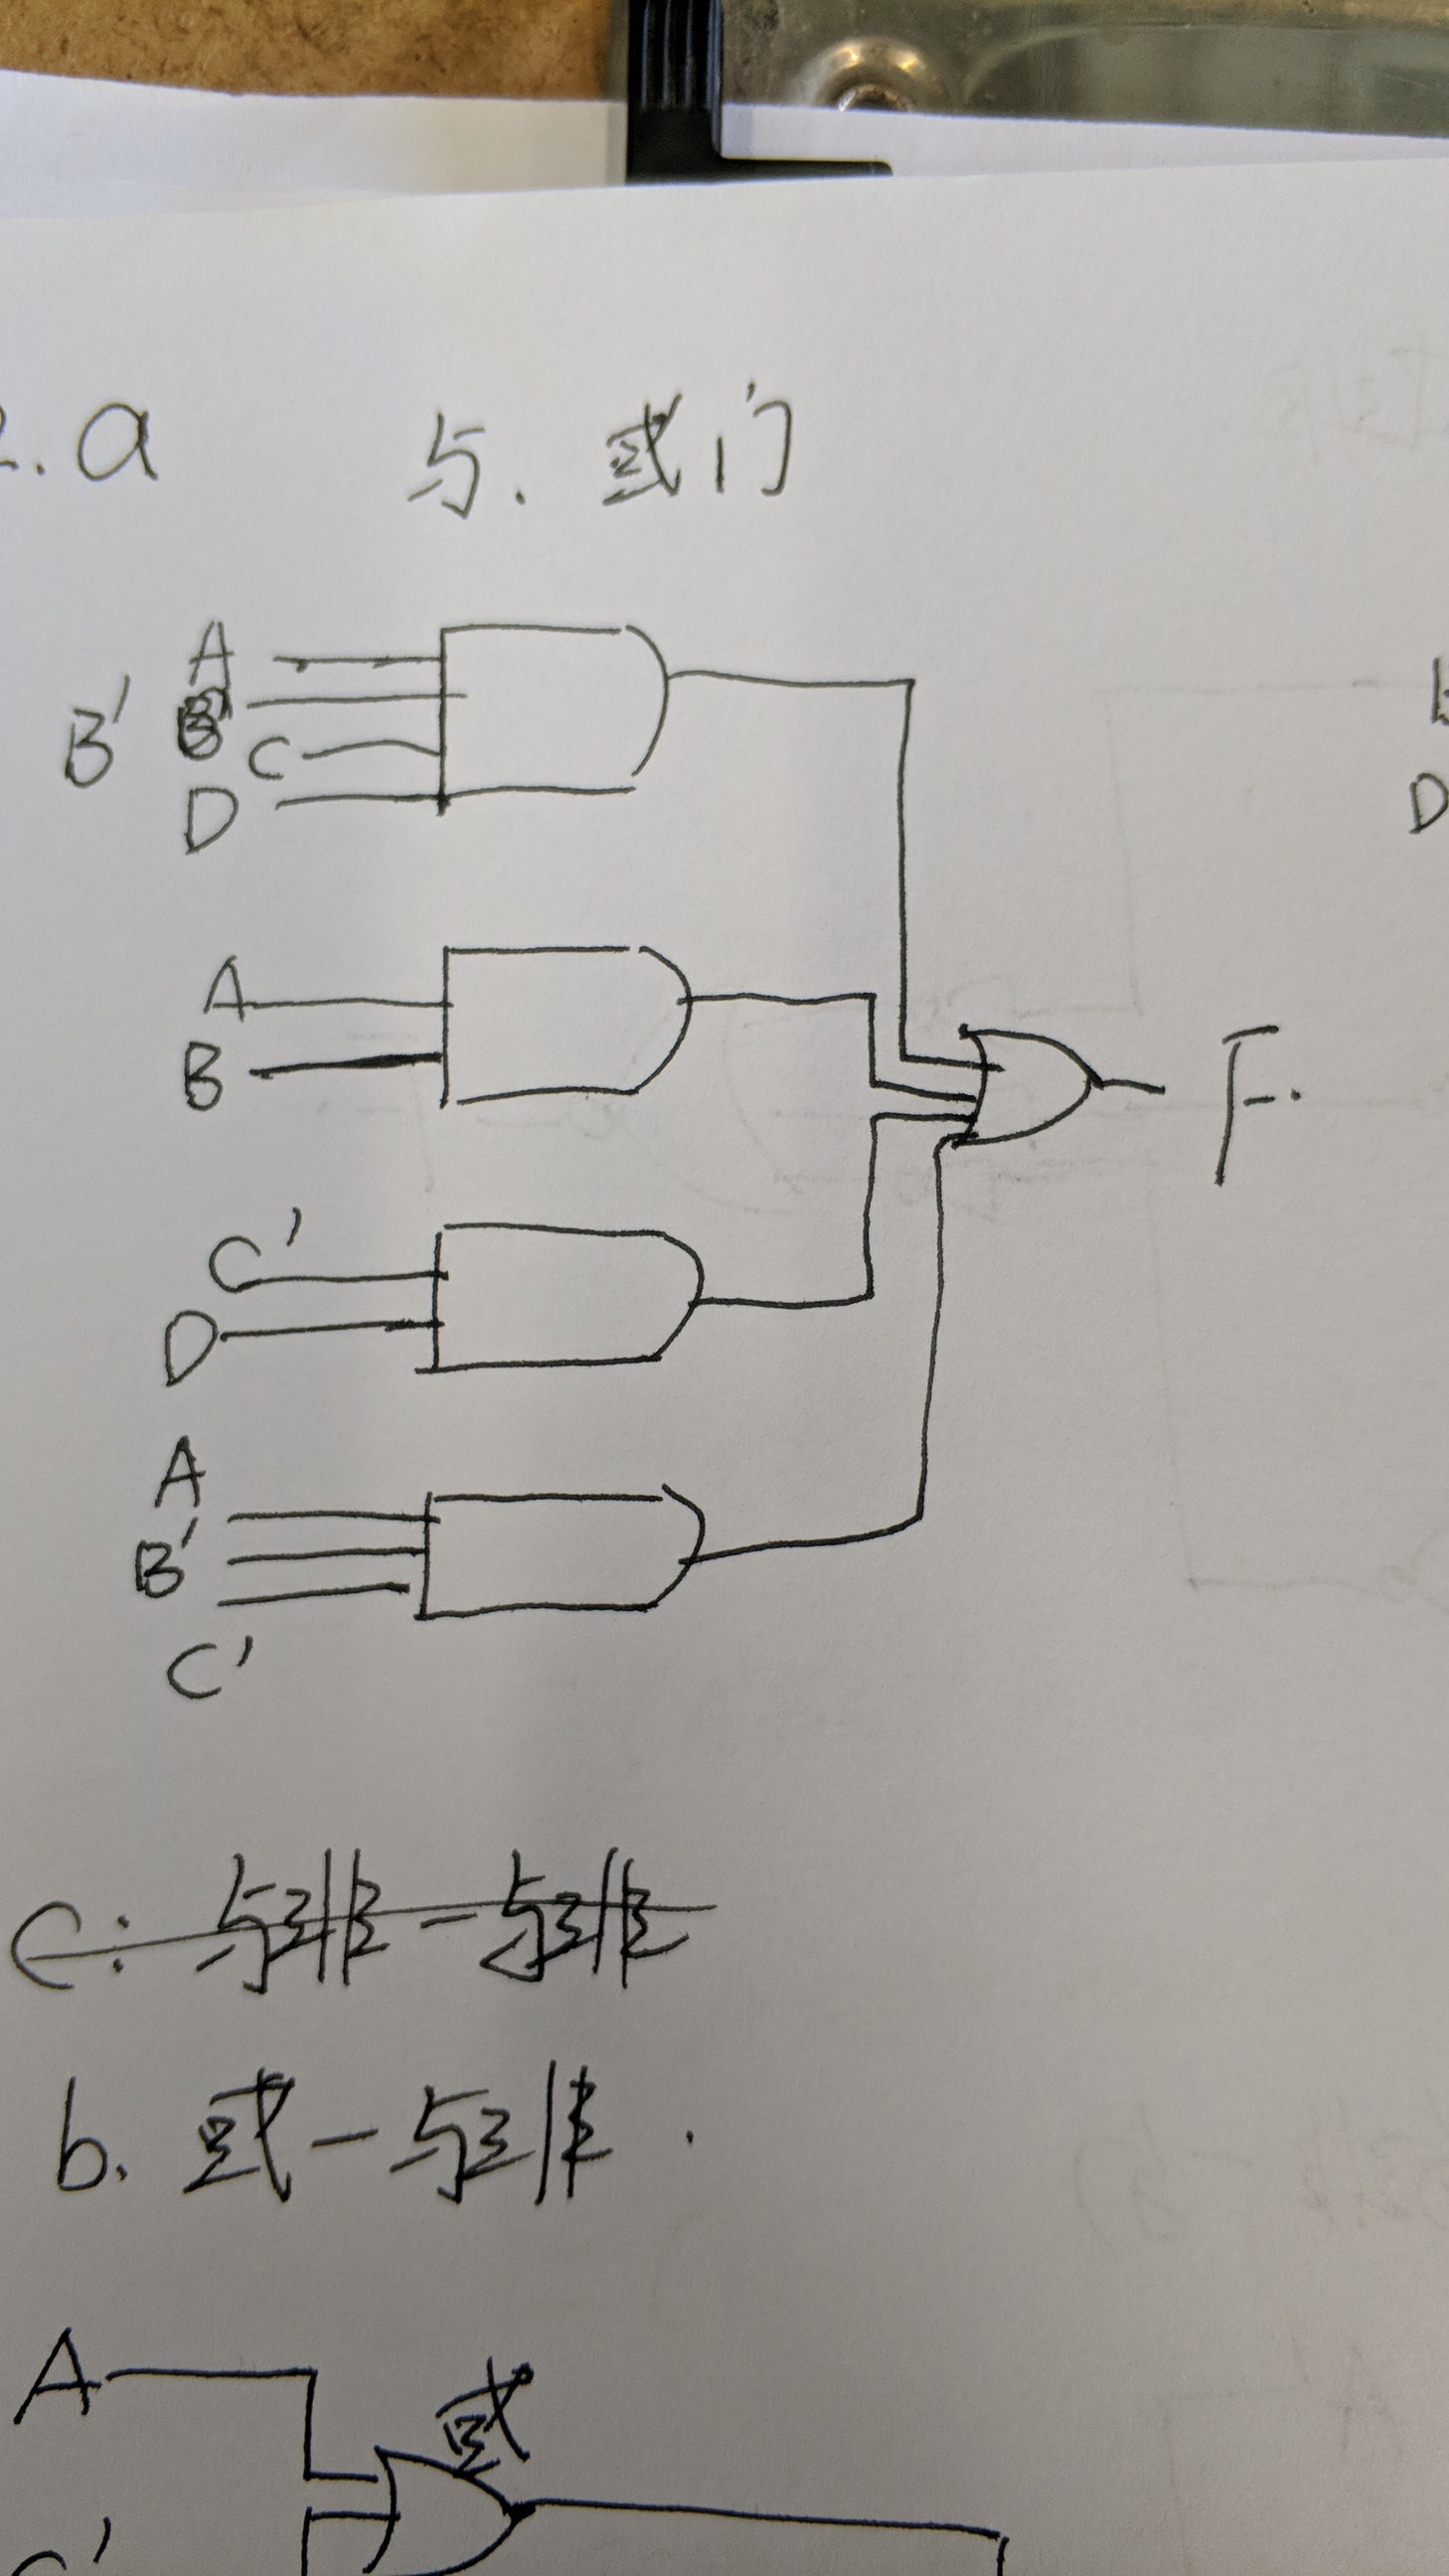 2.a 与. 或门
A
B' B'
C
D
A
B
F.
C'
D
A
B'
C'
c: 与非-与非
b. 或-与非.
A
或
C'
D